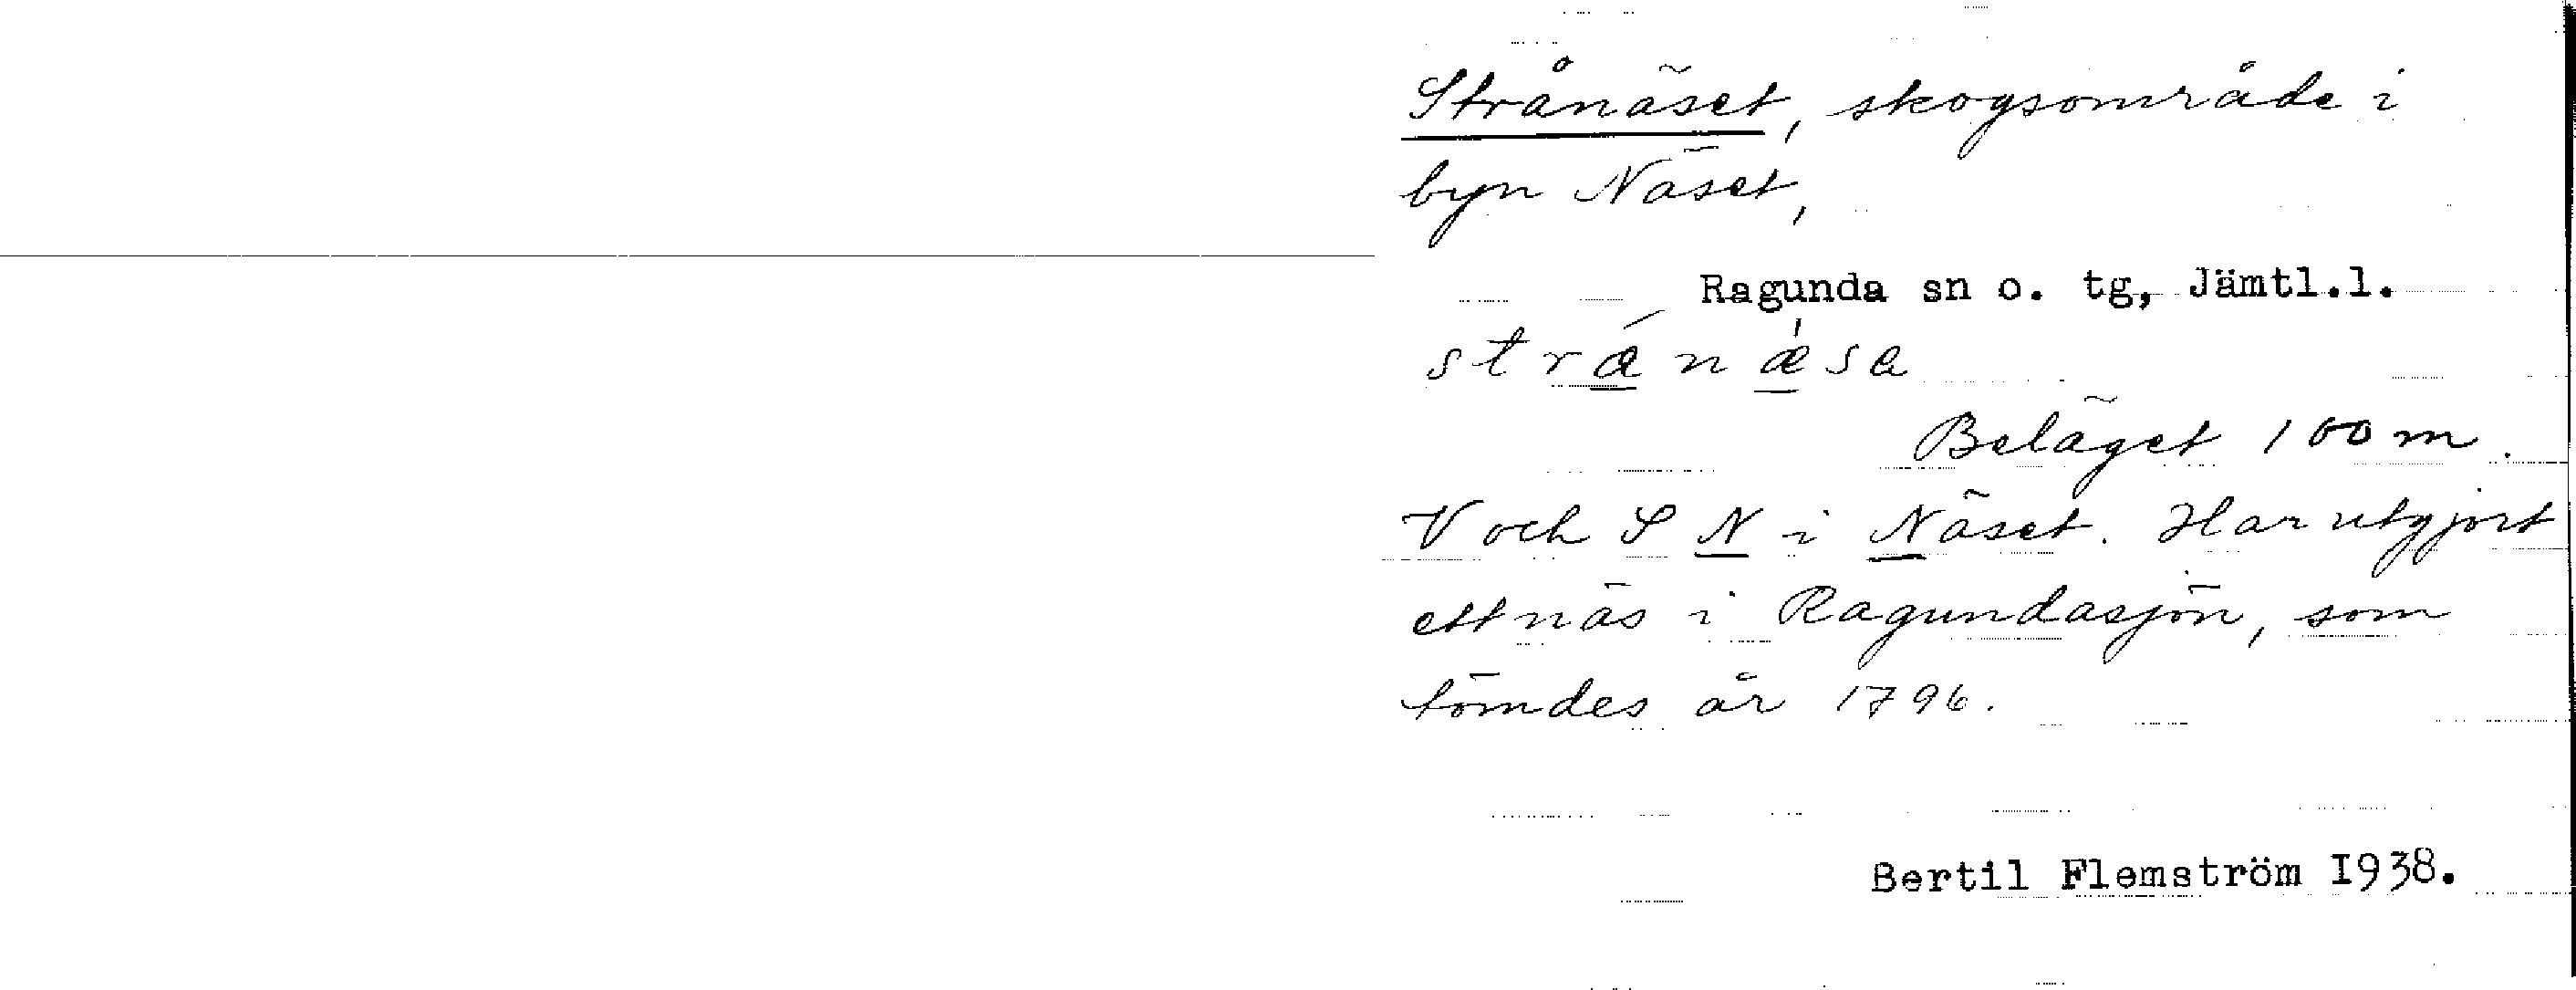 Strånäset, skogsområde i
byn Näset,
Ragunda sn o. tg, Jämtl.l.
stránæ̀sa
Beläget 100 m
V och S N i Näset. Har utgjort
ett näs i Ragundasjön, som
tömdes år 1796.
Bertil Flemström 1938.